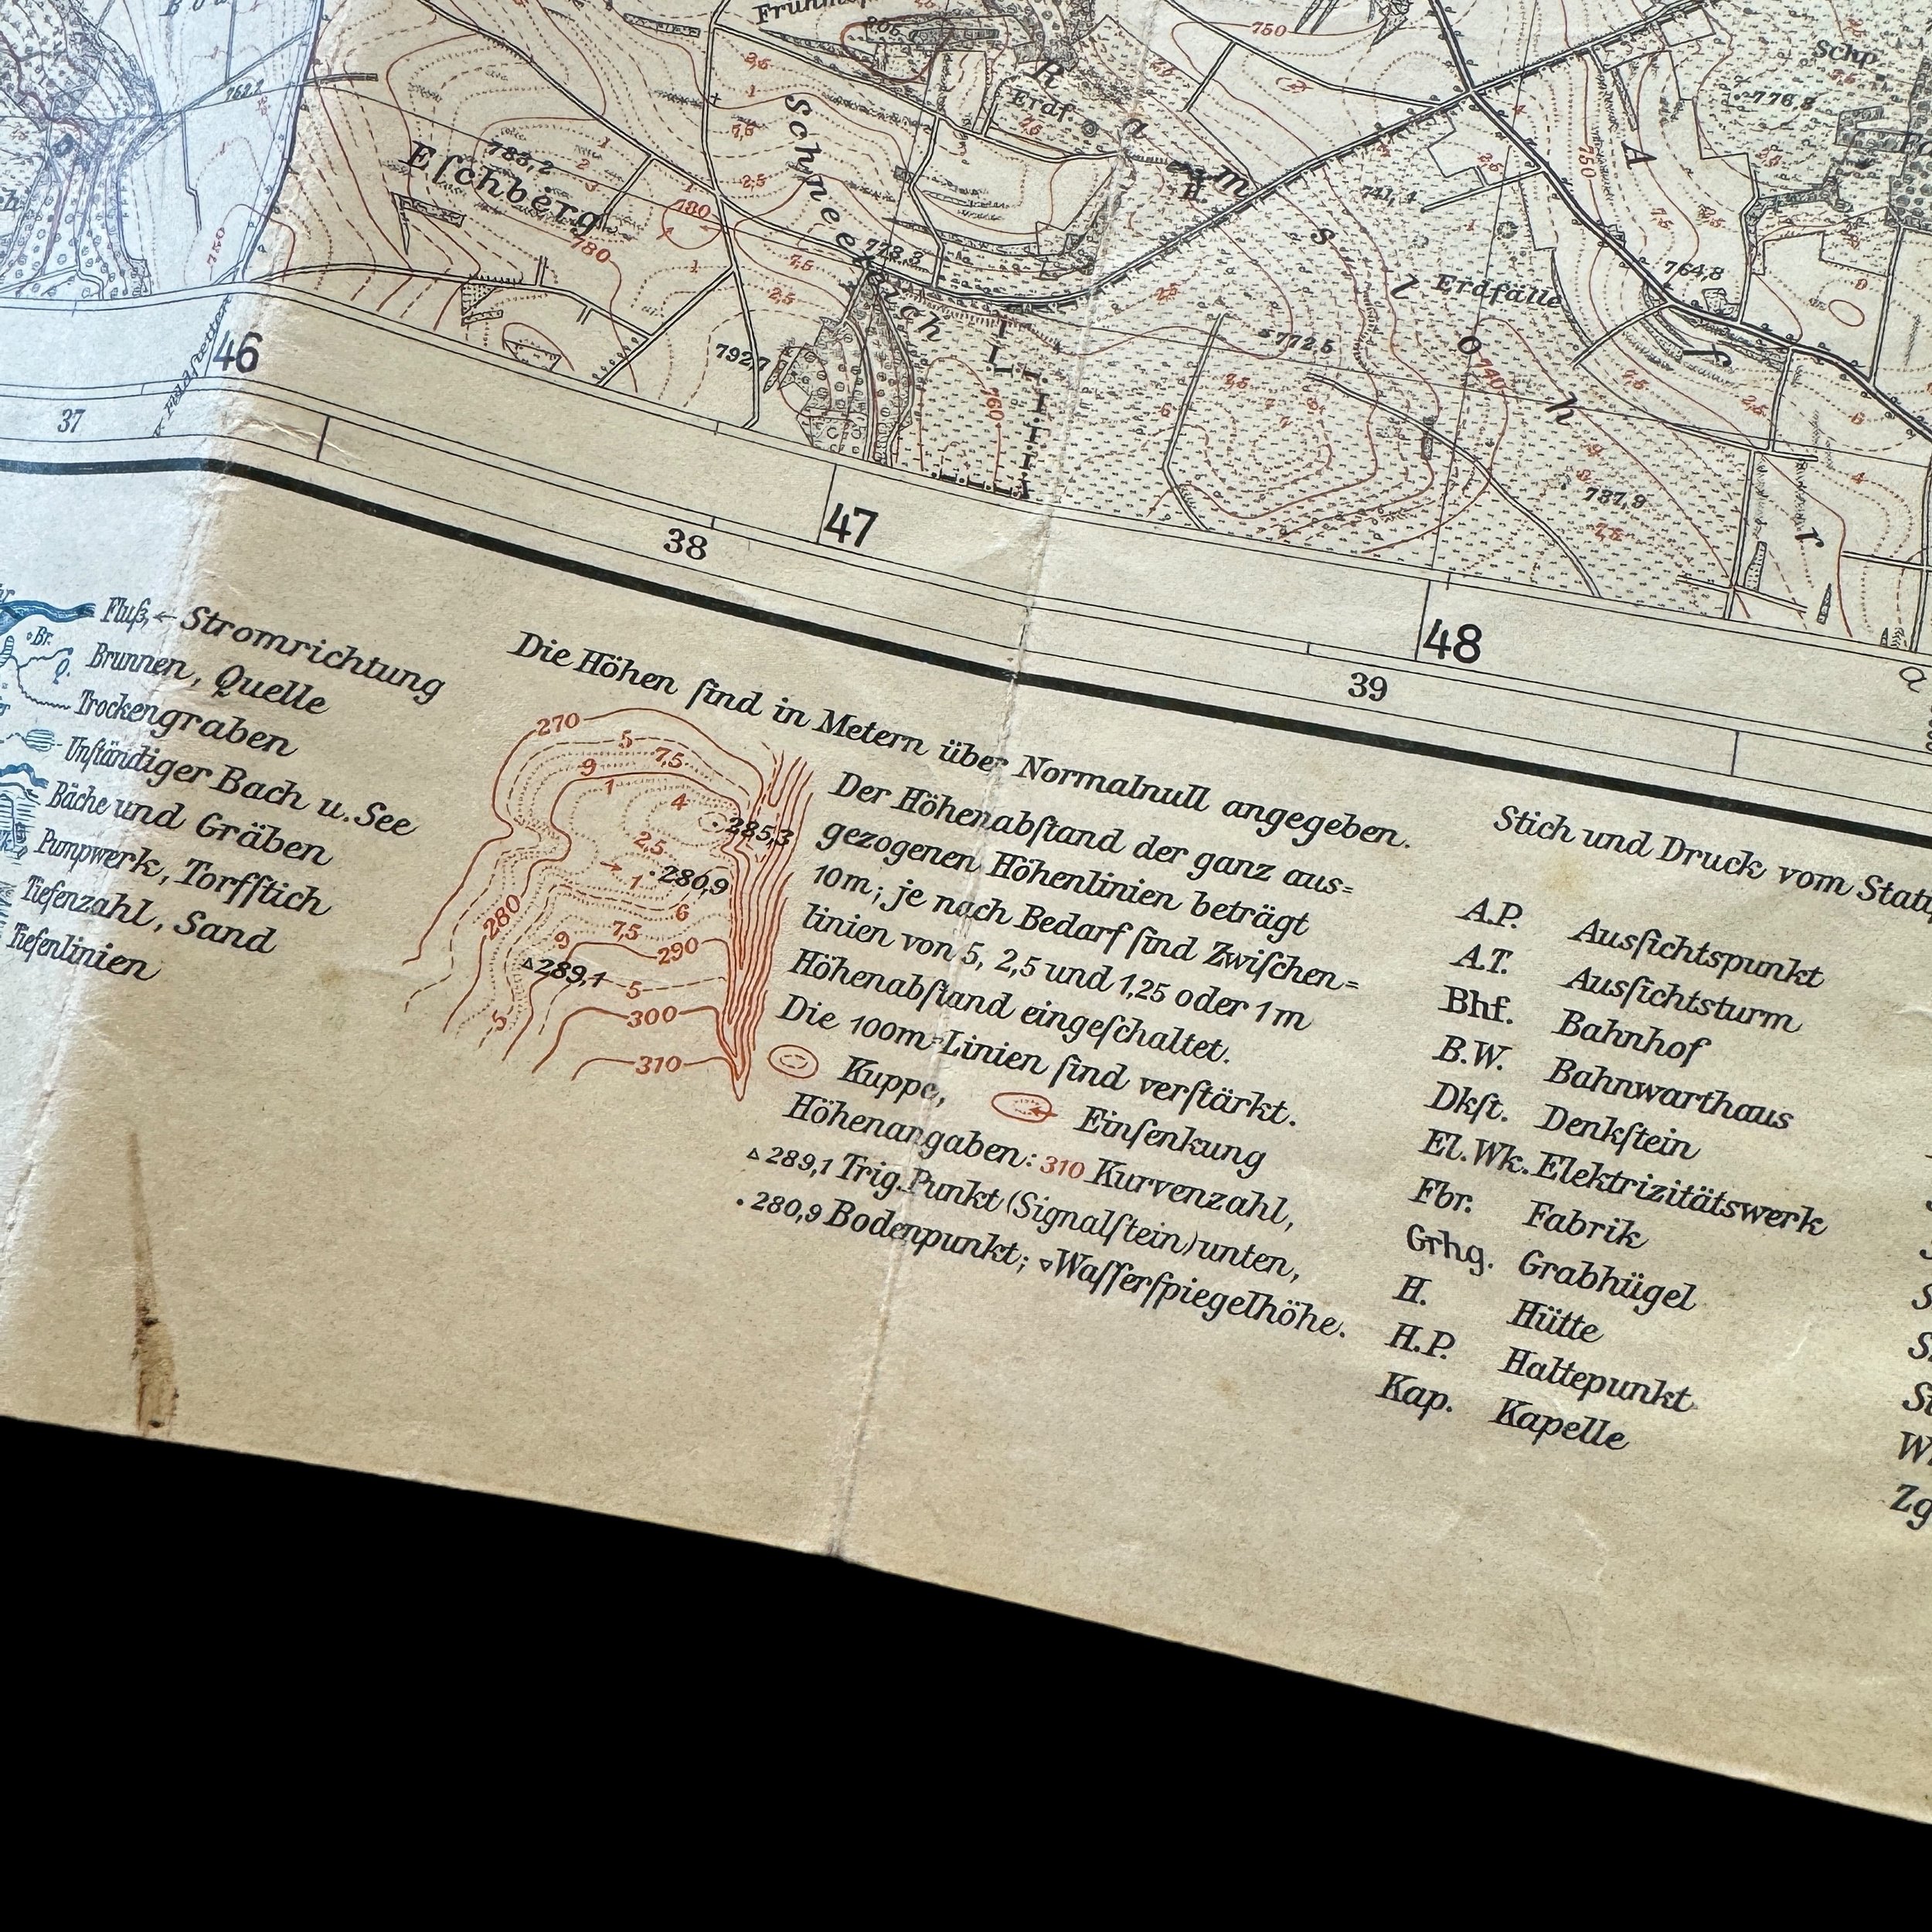 750
Schp.
776,8
762,2
Erdf.
R a m s l o h
A
783,2
Eſchberg
780
780
Schneckich
773,3
741,4
750
764,8
Erdfälle
7927
772,5
760
740
737,9
46
47
48
37
38
39
Fluß, ← Stromrichtung
Br.
Brunnen, Quelle
Q.
Trockengraben
Unſtändiger Bach u. See
Bäche und Gräben
Pumpwerk, Torfſtich
Tiefenzahl, Sand
Tiefenlinien
Die Höhen ſind in Metern über Normalnull angegeben.
270
5
7,5
9
1
4
285,3
2,5
1
280,9
280
6
7,5
9
290
289,1
5
5
300
310
Der Höhenabſtand der ganz aus=
gezogenen Höhenlinien beträgt
10m; je nach Bedarf ſind Zwiſchen=
linien von 5, 2,5 und 1,25 oder 1m
Höhenabſtand eingeſchaltet.
Die 100m=Linien ſind verſtärkt.
Kuppe, Einſenkung
Höhenangaben: 310 Kurvenzahl,
▵ 289,1 Trig. Punkt (Signalſtein) unten,
. 280,9 Bodenpunkt; ▿ Waſſerſpiegelhöhe.
Stich und Druck vom
A.P. Ausſichtspunkt
A.T. Ausſichtsturm
Bhf. Bahnhof
B.W. Bahnwarthaus
Dkſt. Denkſtein
El.Wk. Elektrizitätswerk
Fbr. Fabrik
Grhg. Grabhügel
H. Hütte
H.P. Haltepunkt
Kap. Kapelle